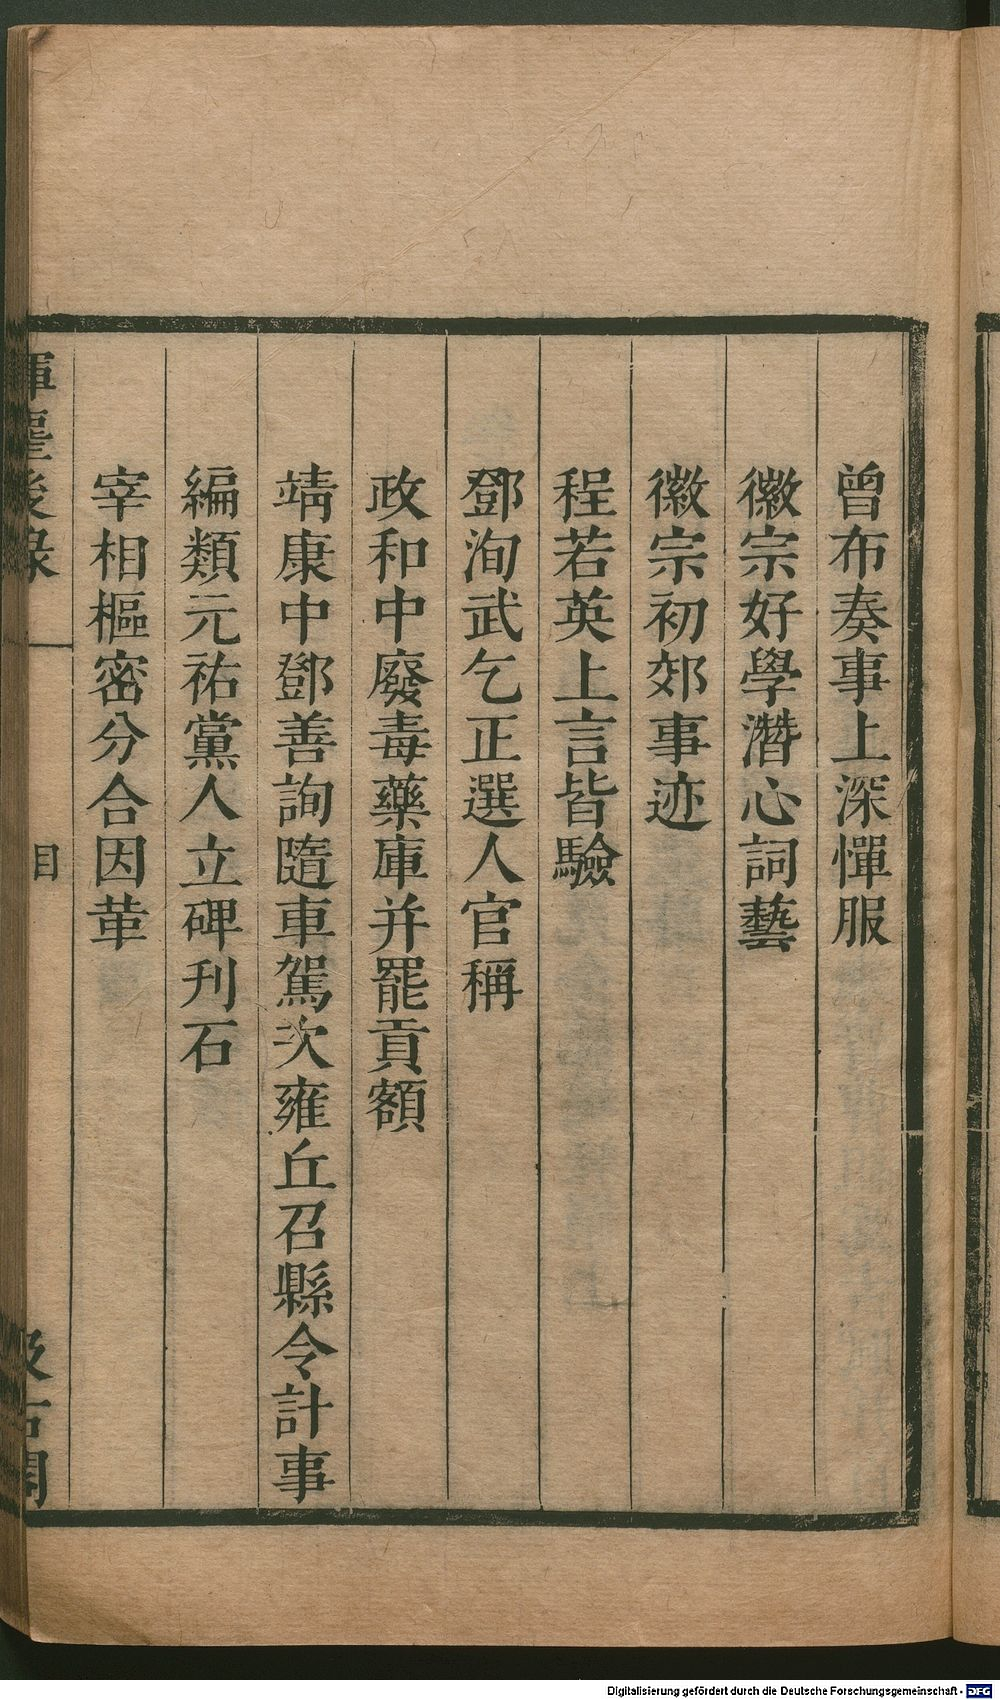 曾布奏事上深憚服
徽宗好學潛心詞藝
徽宗初郊事迹
程若英上言皆驗
鄧洵武乞正選人官稱
政和中廢毒藥庫并罷貢額
靖康中鄧善詢隨車駕次雍丘召縣令計事
編類元祐黨人立碑刊石
宰相樞密分合因革
揮麈後錄
目
汲古閣
Digitalisierung gefördert durch die Deutsche Forschungsgemeinschaft - DFG